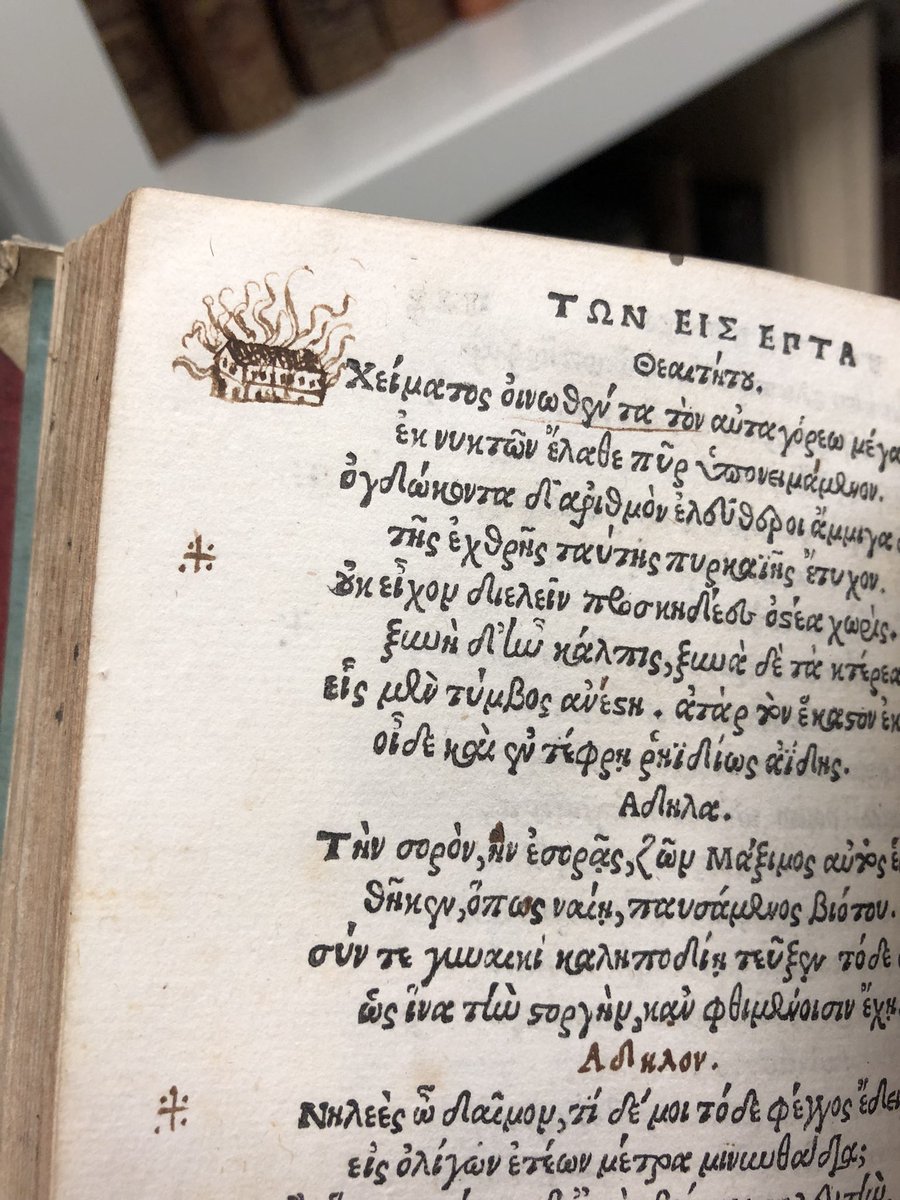 ΤΩΝ ΕΙΣ ΕΠΤΑ
Θεαιτήτου.
Χείματος οἰνωθέντα τὸν αὐταγόρεω μέγα
ἐκ νυκτῶν ἔλαθε πῦρ ὑπονειμάμενον.
ὀγδώκοντα δ' ἀριθμὸν ἐλεύθεροι ἄμμιγα
τῆς ἐχθρῆς ταύτης πυρκαϊῆς ἔτυχον.
οὐκ εἶχον διελεῖν προσκηδέες ὀστέα χωρίς.
ξυνὴ δ' ἦν κάλπις, ξυνὰ δὲ τὰ κτέρεα
εἷς μὲν τύμβος ἀνέστη. ἀτὰρ τὸν ἕκαστον ἐκ
οἶδε καὶ ἐν τέφρῃ ῥηϊδίως ἀΐδης.
Αδηλα.
Τὴν σορὸν, ἣν ἐσορᾷς, ζῶν Μάξιμος αὐτὸς
θῆκεν, ὅπως ναίῃ, παυσάμενος βιότου.
σύν τε γυναικὶ καληποδίῃ τεῦξεν τόδε
ὣς ἵνα τὴν στοργὴν, κᾂν φθιμένοισιν ἔχῃ
Αδηλον.
Νηλεὲς ὦ δαῖμον, τί δέ μοι τόδε φέγγος ἔδει
εἰς ὀλίγων ἐτέων μέτρα μινυνθάδια;